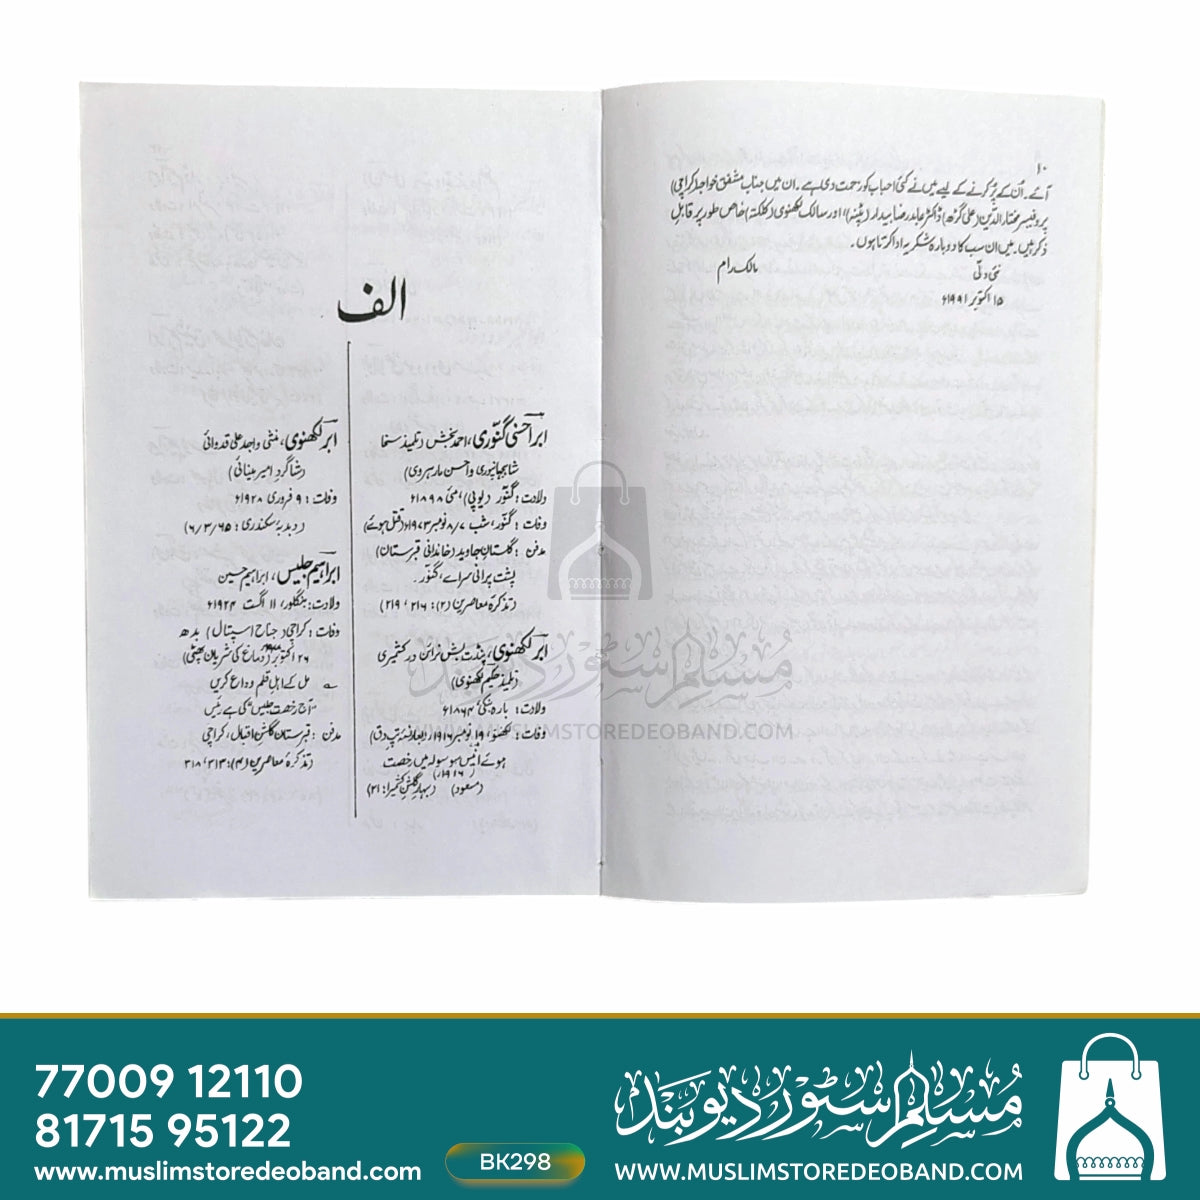 ۱۰
آئے۔ اُن کے پُر کرنے کے لیے میں نے کئی احباب کو زحمت دی ہے۔ ان میں جناب مشفق خواجہ (کراچی)
پروفیسر مختار الدین (علی گڑھ) ڈاکٹر عابد رضا بیدار (پٹنہ)، اور سالک لکھنوی (کلکتہ) خاص طور پر قابلِ
ذکر ہیں۔ میں ان سب کا دوبارہ شکریہ ادا کرتا ہوں۔
مالک رام
نئی دلّی
۱۵ اکتوبر ۱۹۹۱ء
الف
ابر احسنی گنّوری، احمد بخش (تلمیذ سخا
شاہجہانپوری و احسن مارہروی)
ولادت: گنّور (یوپی)، مئی ۱۸۹۸ء
وفات: گنّور، شب ۸/۷ نومبر ۱۹۷۳ء (قتل ہوئے)
مدفن: گلستانِ جاوید (خاندانی قبرستان)
پشت پرانی سراے، گنّور۔
(تذکرۂ معاصرین (۲): ۲۱۶، ۲۱۹)
ابر لکھنوی، پنڈت بشن نرائن در کشمیری
(تلمیذ حکیم لکھنوی)
ولادت: بارہ بنکی ۱۸۶۴ء
وفات: لکھنؤ، ۱۹ نومبر ۱۹۱۶ء، (بعارضہ تپ دق)
ہوئے انیس سو سولہ میں رخصت
(۱۹۱۶ء)
(مسعود) (بہارِ گلشنِ کشمیر ۱: ۲۱)
ابر لکھنوی، منشی واجد علی قدوائی
(شاگردِ امیر مینائی)
وفات: ۹ فروری ۱۹۲۸ء
(دبدبۂ سکندری: ۶/۳/۶۵)
ابراہیم جلیس، ابراہیم حسین
ولادت: بنگلور، ۱۱ اگست ۱۹۲۴ء
وفات: کراچی (جناح اسپتال) بدھ
۲۶ اکتوبر (دماغ کی شریان پھٹی)
مل کے اہلِ قلم وداع کریں
"آج رخصت جلیس" کی ہے رئیس
مدفن: قبرستان گلشنِ اقبال، کراچی
(تذکرۂ معاصرین (۴): ۳۱۳، ۳۱۸)
مسلم سٹور دیوبند
WWW.MUSLIMSTOREDEOBAND.COM
77009 12110
81715 95122
www.muslimstoredeoband.com
BK298
مسلم سٹور دیوبند
WWW.MUSLIMSTOREDEOBAND.COM